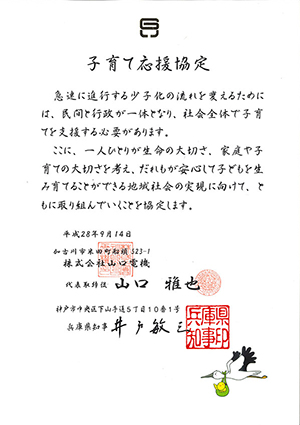 子育て応援協定
急速に進行する少子化の流れを変えるために
は、民間と行政が一体となり、社会全体で子育て
を支援する必要があります。
ここに、一人ひとりが生命の大切さ、家庭や子
育ての大切さを考え、だれもが安心して子どもを生
み育てることができる地域社会の実現に向けて、と
もに取り組んでいくことを協定します。
平成28年9月14日
加古川市米田町船頭523-1
株式会社山口電機
代表取締役 山口 雅也
神戸市中央区下山手通5丁目10番1号
兵庫県知事 井戸敏三
兵庫県
知事印